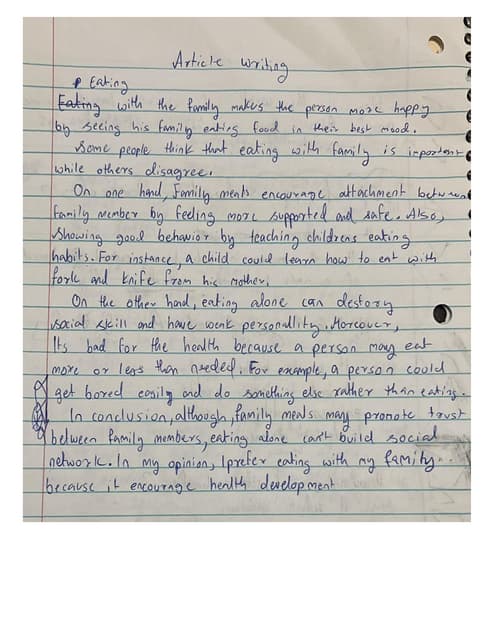 Article writing
Eating
Eating with the family makes the person more happy
by seeing his family eating food in their best mood.
Some people think that eating with family is important
while others disagree.
On one hand, Family meals encourage attachment between
family member by feeling more supported and safe. Also,
showing good behavior by teaching childrens eating
habits. For instance, a child could learn how to eat with
fork and knife from his mother.
On the other hand, eating alone can destory
social skill and have weak personallity. Morcover,
Its bad for the health because a person may eat
more or less than needed. For example, a person could
get bored easily and do something else rather than eating.
In conclusion, although, family meals may promote trust
between family members, eating alone can't build social
network. In my opinion, I prefer eating with my family
because it encourage health development